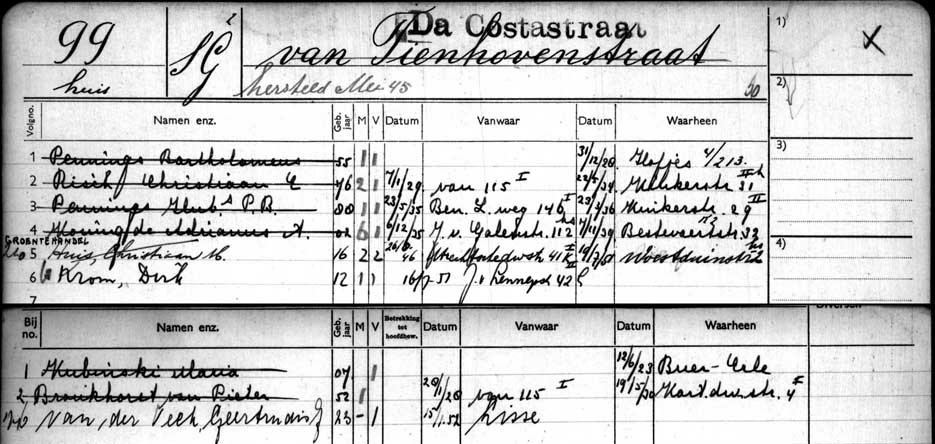 Da Costastraat
99 SG van Tienhovenstraat 1)
huis hersteld Mei 45 2)
Volgno. Namen enz. Geb. jaar M V Datum Vanwaar Datum Waarheen 3)
1 Pennings Bartholomeus 55 1 1 31/12/28 Hofjes 4/213
2 Risch Christiaan E 76 2 1 7/1/29 van 115 I Klinkerstr 31
3 Pennings Hub.s P.B. 80 1 1 23/5/35 Ben. L. weg 146 I Kinkerstr. 29 II
4 Koning de Adrianus A. 02 6 1 6/12/35 J. v. Galenstr. 112 7/11/39 Bestevaerstr. 32
GROENTEHANDEL 4)
5 Huis, Christiaan M. 16 2 2 46 41 Woestduinstr
6 Krom, Dirk 12 1 1 16/7 51 J. v Lennepst 42
7
Bij no. Namen enz. Geb. jaar M V Betrekking tot hoofdbew. Datum Vanwaar Datum Waarheen Diversen
1 Kubinski Maria 07 1 12/6/23 Buer-Erle
2 Bronkhorst van Pieter 52 1 20/1/28 van 115 I 19/5/30 4
van der Veek, 23 - 1 15/1.52 Lisse